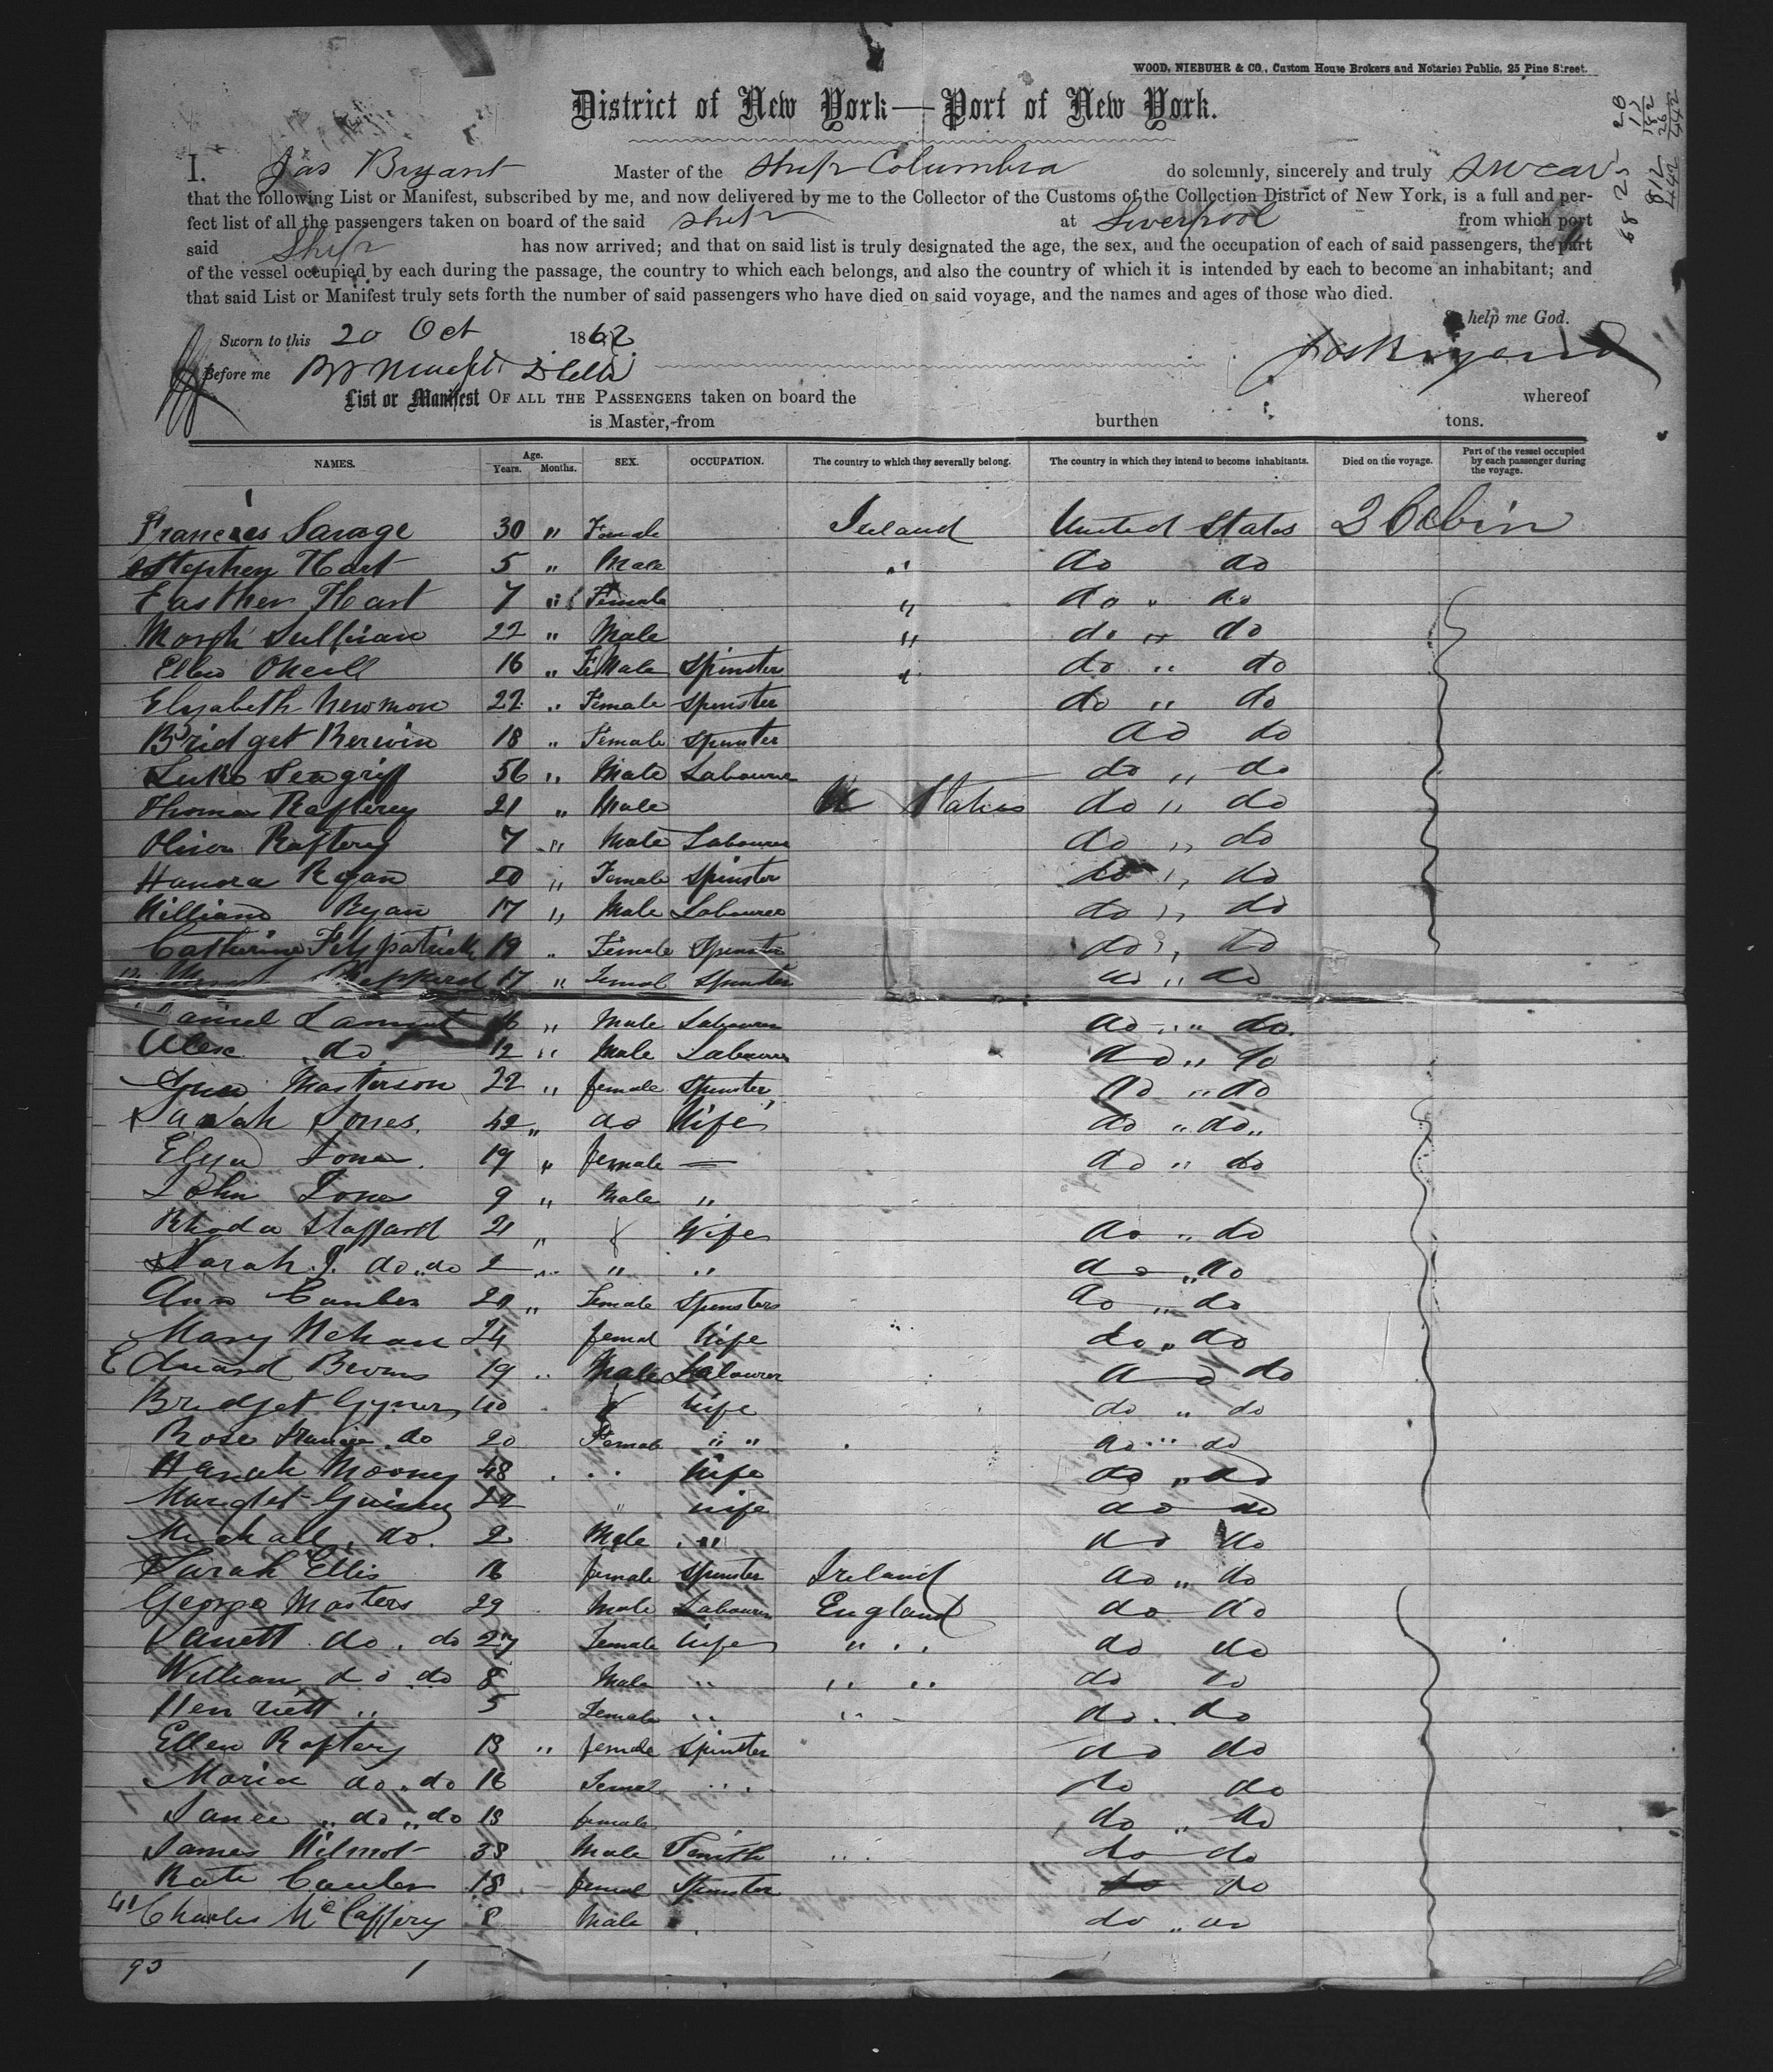 WOOD, NIEBUHR & CO., Custom House Brokers and Notaries Public, 25 Pine Street.
District of New York—Port of New York.
I. Jas Bryant Master of the Ship Columbia do solemnly, sincerely and truly swear
that the following List or Manifest, subscribed by me, and now delivered by me to the Collector of the Customs of the Collection District of New York, is a full and per-
fect list of all the passengers taken on board of the said ship at Liverpool from which port
said Ship has now arrived; and that on said list is truly designated the age, the sex, and the occupation of each of said passengers, the part
of the vessel occupied by each during the passage, the country to which each belongs, and also the country of which it is intended by each to become an inhabitant; and
that said List or Manifest truly sets forth the number of said passengers who have died on said voyage, and the names and ages of those who died.
So help me God.
Sworn to this 20 Oct 1862
Before me
Jas Bryant
List or Manifest OF ALL THE PASSENGERS taken on board the whereof
is Master, from burthen tons.
NAMES. Age. Years. Months. SEX. OCCUPATION. The country to which they severally belong. The country in which they intend to become inhabitants. Died on the voyage. Part of the vessel occupied by each passenger during the voyage.
Francies Savage 30 " Female Ireland United States 2 Cabin
Stephen Hart 5 " Male " do do
Easther Hart 7 " Female " do " do
Sullivan 22 " Male " do " do
Ellen Oneill 16 " Female Spinster " do " do
Elizabeth Newmon 22 " Female Spinster do " do
Bridget Kerwin 18 " Female Spinster do do
Luke Seagrif 56 " Male Labourer do " do
Thomas Rafterey 21 " Male U States do " do
Oliver Raftery 7 " Male Labourer do " do
Hanora Ryan 20 " Female Spinster do " do
William Ryan 17 " Male Labourer do " do
Catherine Fitzpatrick 19 " Female Spinster do " do
17 " Femal Spinster do " do
Daniel Lamont 16 " Male Labourer do " " do
Alex do 12 " Male Labourer do " do
Masterson 22 " female Spinster do " do
Sarah Jones. 42 " do Wife do " do "
Elyza Jones. 19 " female — do " do
John Jones 9 " Male "
Rhoda Staffard 21 " Wife do " do
Sarah J. do " do 2 " " " do " do
Ann Caulen 20 " Female Spinsters do " do
Mary Mehan 24 femal Wife do " do
Edward Brown 19 " Male Labourer do do
Bridget 40 Wife do " do
Rose do 20 Female " " do " do
Hanah Mooney 48 " Wife do " do
Margret 22 " wife do do
Michael, do. 2 Male " do do
Sarah Ellis 16 female Spinster Ireland do " do
George Masters 29 Male Labourer England do do
Janett do. do 27 Female Wife " " do do
William do do 8 Male " " " do do
Henriett " 5 Female " " do . do
Ellen Raftery 13 " female Spinster do do
Maria do " do 16 Femal " do do
do " do 13 female do " do
James Wilmot 38 Male " do do
Kate Caulen 18 femal Spinster do do
41 Charles McCaffery 8 Male do " do
93 1